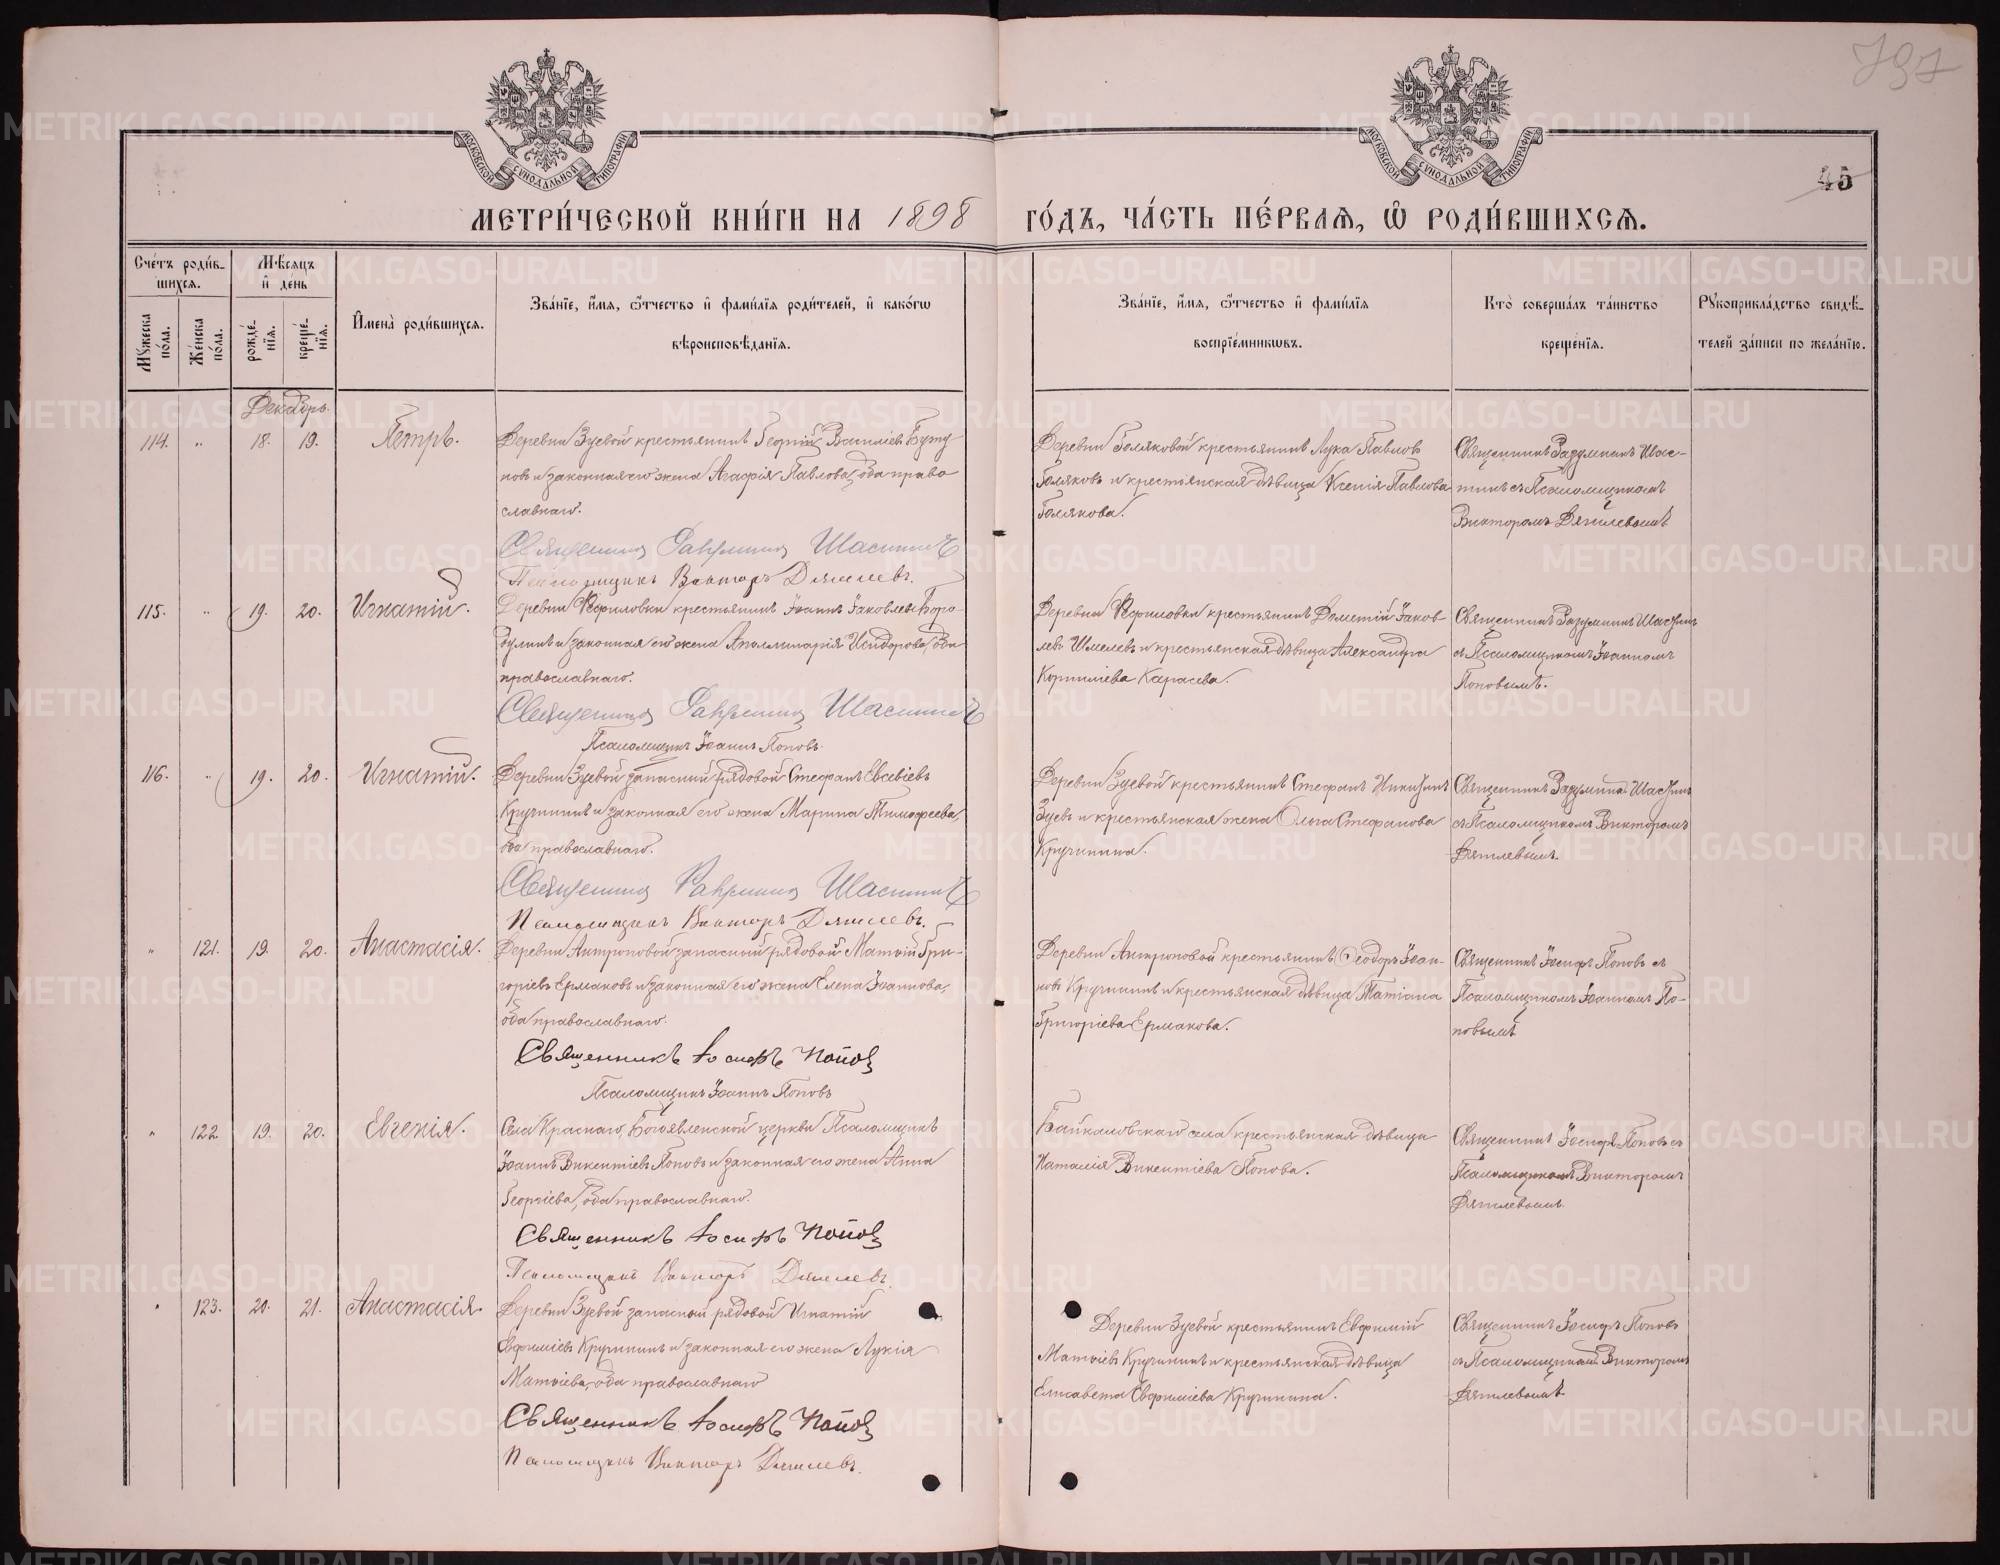 797
45
МОСКОВСКОЙ СѴНОДАЛЬНОЙ ТИПОГРАФИИ
МОСКОВСКОЙ СѴНОДАЛЬНОЙ ТИПОГРАФИИ
МЕТРИ́ЧЕСКОЙ КНИ́ГИ НА 1898 ГО́ДЪ, ЧА́СТЬ ПЕ́РВАѦ, Ѡ҆ РОДИ́ВШИХСѦ.
Сче́тъ роди́в-
шихсѧ.
Мѣ́сѧцъ
и҆ де́нь
Мꙋ́жеска по́ла.
Же́нска по́ла.
рожде́-нїѧ.
креще́-нїѧ.
И҆мена̀ роди́вшихсѧ.
Зва́нїе, и҆́мѧ, ѻ҆́тчество и҆ фами́лїѧ роди́телей, и҆ како́гѡ
вѣроисповѣ́данїѧ.
Зва́нїе, и҆́мѧ, ѻ҆́тчество и҆ фами́лїѧ
воспрїе́мникѡвъ.
Кто̀ соверша́лъ та́инство
креще́нїѧ.
Рꙋкоприкла́дство свидѣ́-
телей за́писи по жела́нїю.
Декабрь
114. " 18. 19. Петръ.
Деревни Зуевой крестьянинъ Георгій Василіевъ
новъ и законная его жена Агафія Павлова, оба право
славнаго.
Священникъ Шастинъ
Псаломщикъ Викторъ Дягилевъ.
Деревни Поляковой крестьянинъ Лука Павловъ
Поляковъ и крестьянская дѣвица Ксенія Павлова
Полякова.
Священникъ Шас-
тинъ съ Псаломщикомъ
Викторомъ Дягилевымъ
115. " 19. 20. Игнатій.
Деревни крестьянинъ Іоаннъ Іаковлевъ Боро-
дулинъ и законная его жена Аполлинарія Исидорова, оба
православнаго.
Священникъ Шастинъ
Псаломщикъ Іоаннъ Поповъ.
Деревни крестьянинъ Димитрій Іаков
левъ Шмелевъ и крестьянская дѣвица Александра
Корниліева Карасева.
Священникъ Шастинъ
съ Псаломщикомъ Іоанномъ
Поповымъ.
116. " 19. 20. Игнатій.
Деревни Зуевой запасный рядовой Стефанъ Евсевіевъ
Кручининъ и законная его жена Марина Тимофеева,
оба православнаго.
Священникъ Шастинъ
Псаломщикъ Викторъ Дягилевъ.
Деревни Зуевой крестьянинъ Стефанъ Никитинъ
Зуевъ и крестьянская жена Ольга Стефанова
Кручинина.
Священникъ Шастинъ
съ Псаломщикомъ Викторомъ
Дягилевымъ.
" 121. 19. 20. Анастасія.
Деревни Антроповой запасный рядовой Матѳій Гри-
горіевъ Ермаковъ и законная его жена Елена Іоаннова,
оба православнаго.
Священникъ Іосифъ Поповъ
Псаломщикъ Іоаннъ Поповъ
Деревни Антроповой крестьянинъ Ѳеодоръ Іоан-
новъ Кручининъ и крестьянская дѣвица Татіана
Григоріева Ермакова.
Священникъ Іосифъ Поповъ съ
Псаломщикомъ Іоанномъ По-
повымъ
" 122 19. 20. Евгенія.
Села Краснаго, Богоявленской церкви Псаломщикъ
Іоаннъ Викентіевъ Поповъ и законная его жена Анна
Георгіева, оба православнаго.
Священникъ Іосифъ Поповъ
Псаломщикъ Викторъ Дягилевъ.
Байкаловскаго села крестьянская дѣвица
Наталія Викентіева Попова.
Священникъ Іосифъ Поповъ съ
Псаломщикомъ Викторомъ
Дягилевымъ.
" 123. 20. 21. Анастасія
Деревни Зуевой запасный рядовой Игнатій
Евфиміевъ Кручининъ и законная его жена Лукія
Матѳіева, оба православнаго
Священникъ Іосифъ Поповъ
Псаломщикъ Викторъ Дягилевъ.
Деревни Зуевой крестьянинъ Евфимій
Матѳіевъ Кручининъ и крестьянская дѣвица
Елисавета Евфиміева Кручинина.
Священникъ Іосифъ Поповъ
съ Псаломщикомъ Викторомъ
Дягилевымъ.
METRIKI.GASO-URAL.RU